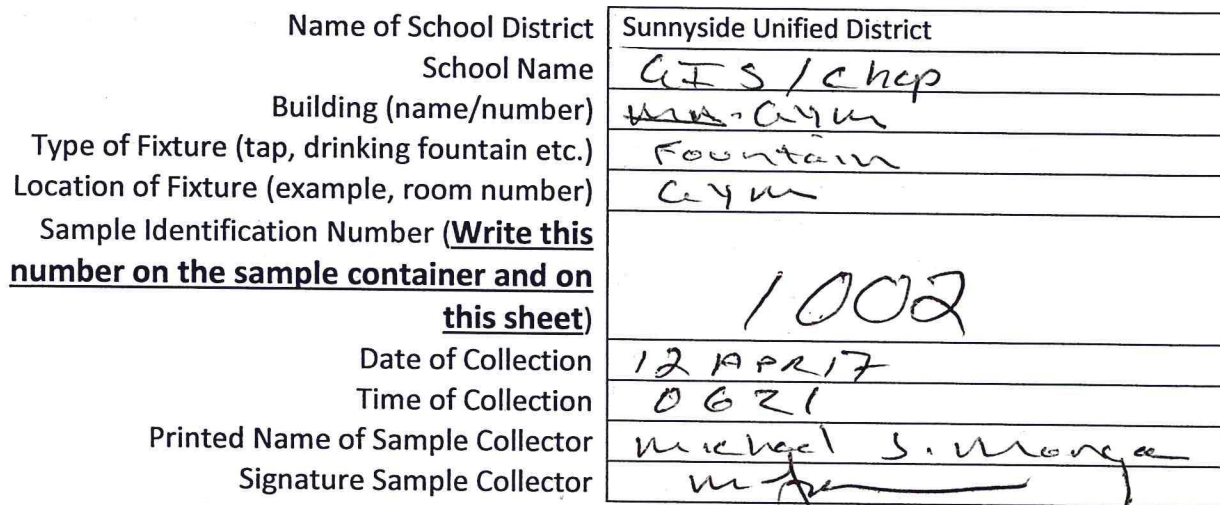 Name of School District Sunnyside Unified District
School Name GIS / Chap
Building (name/number) Gym
Type of Fixture (tap, drinking fountain etc.) Fountain
Location of Fixture (example, room number) Gym
Sample Identification Number (Write this
number on the sample container and on
this sheet) 1002
Date of Collection 12 APR 17
Time of Collection 0621
Printed Name of Sample Collector Michael S.
Signature Sample Collector